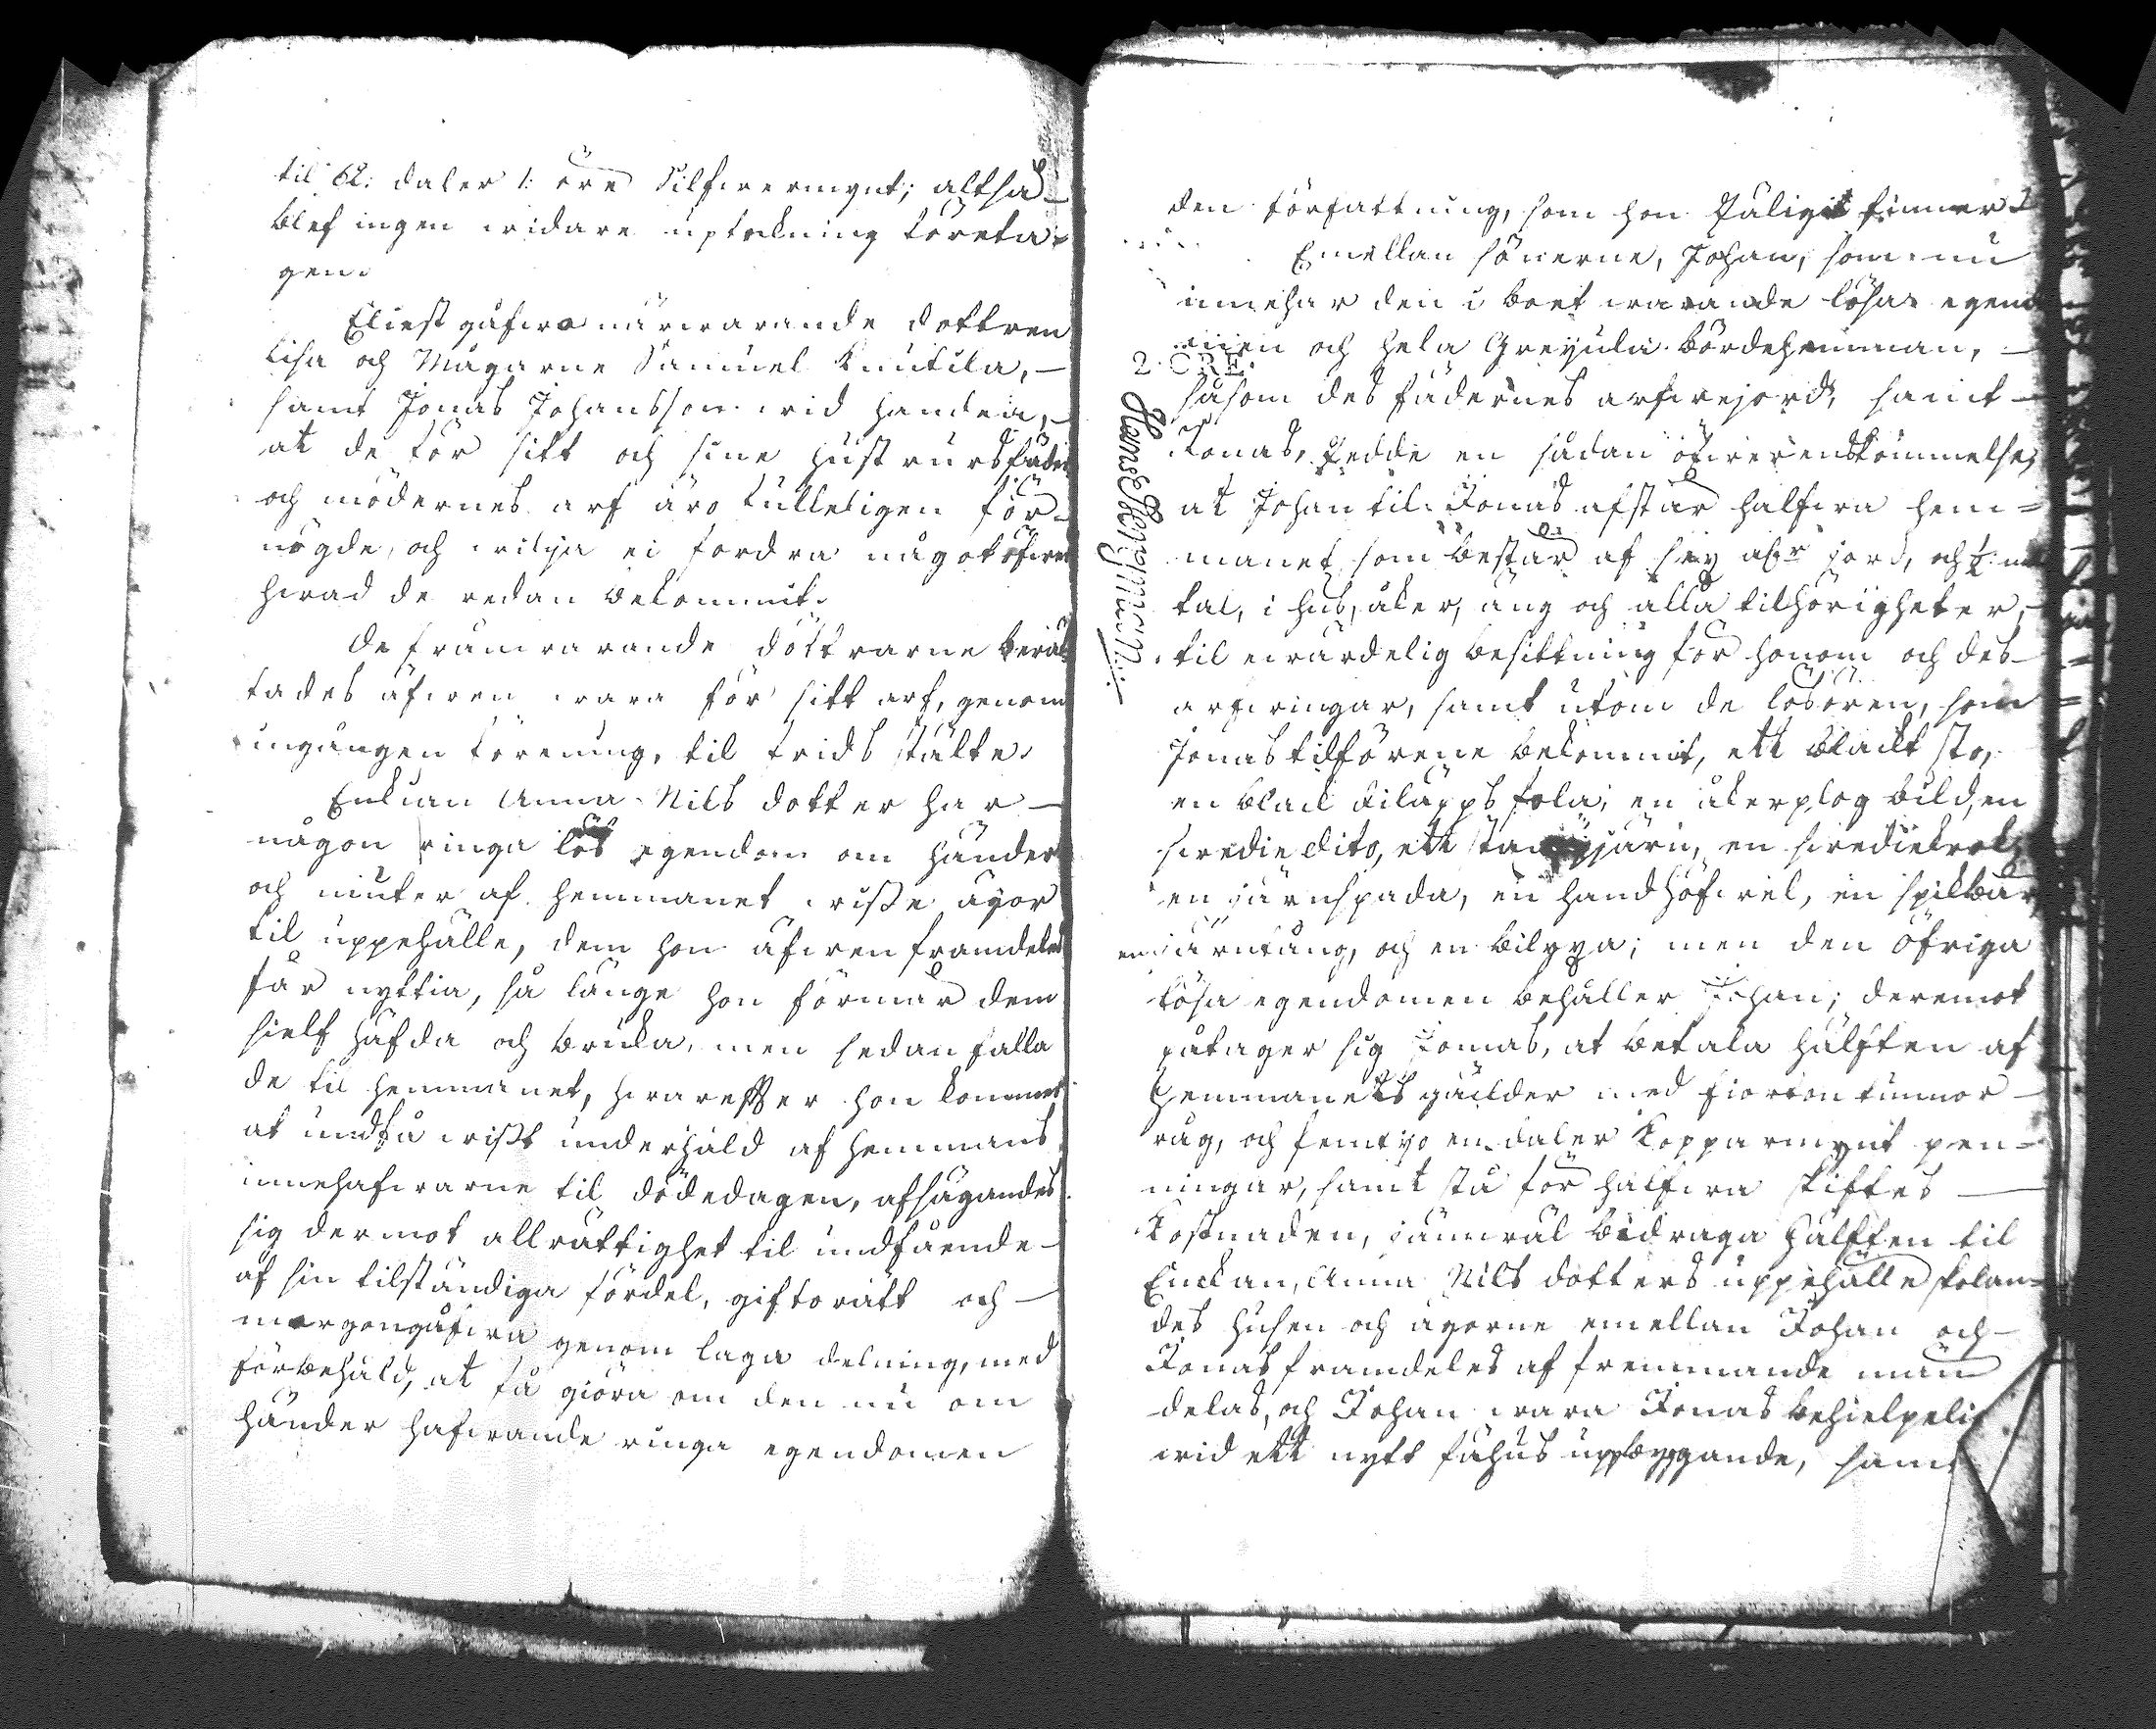 til 62: daler 1: öre Silfwermynt; altså
blef ingen widare uptekning företa-
gen.
Eliest gåfwo närwarande dottren
Lisa och Mågarne Samuel Knutila, —
samt Jonas Johansson wid handen, —
at de för sitt och sine hustrurs fäder
och mödernes arf äro fulleligen för-
nögde, och wilja ei fordra något öfwer
hwad de redan bekommit.
De frånwarande döttrarne berät-
tades äfwen wara för sitt arf, genom
ingången förening, til frids stälte.
Enkian Anna Nils dotter har —
någon ringa lös egendom om händer
och niuter af hemmanet wisse ägor
til uppehälle, dem hon äfwen framdeles
får nyttia, så länge hon förmår dem
sielf häfda och bruka, men sedan falla
de til hemmanet, hwarefter hon kommer
at undfå wist underhåld af hemmans
innehafwarne til dödedagen, afsägandes
sig dermot all rättighet til undfående
af sin tilständiga fördel, giftorätt och —
morgongåfwa genom laga delning, med
förbehåld, at få giöra om den nu om
händer hafwande ringa egendomen
den författning, som hon finner
Emellan sönerne, Johan, som nu
innehar den i boet warande lösa egendo-
men och hela Greyula bördehemman, —
2. ÖRE.
såsom des fädernes arfwejord, samt —
Jonas, skedde en sådan öfwerenskommelse,
at Johan til Jonas afstår halfwa hem-
manet som består af jord, och
tal, i hus, åker, äng och alla tilhörigheter, —
til ewärdelig besittning för honom och des
arfwingar, samt utom de lösören, som
Jonas tilförene bekommit, ett blackt sto,
en black fola; en åkerplog bild, en
swedie dito, ett en swediekrok
en järnspada, en handhöfwel, en
en järntång, och en bilyxa; men den öfriga
lösa egendomen behåller Johan; deremot
påtager sig Jonas, at betala hälften af
Hemmanets gäilder med fiorton tunnor —
råg, och femtyo en daler Kopparmynt pen-
ningar, samt stå för halfwa skiftes —
Kostnaden, jämwäl bidraga hälften til
Enckan, Anna Nils dotters uppehälle skolan-
des husen och ägorne emellan Johan och
Jonas framdeles af fremmande män
delas, och Johan wara Jonas behielpelig
wid ett nytt fähus uppbyggande, samt
Hans Heyman